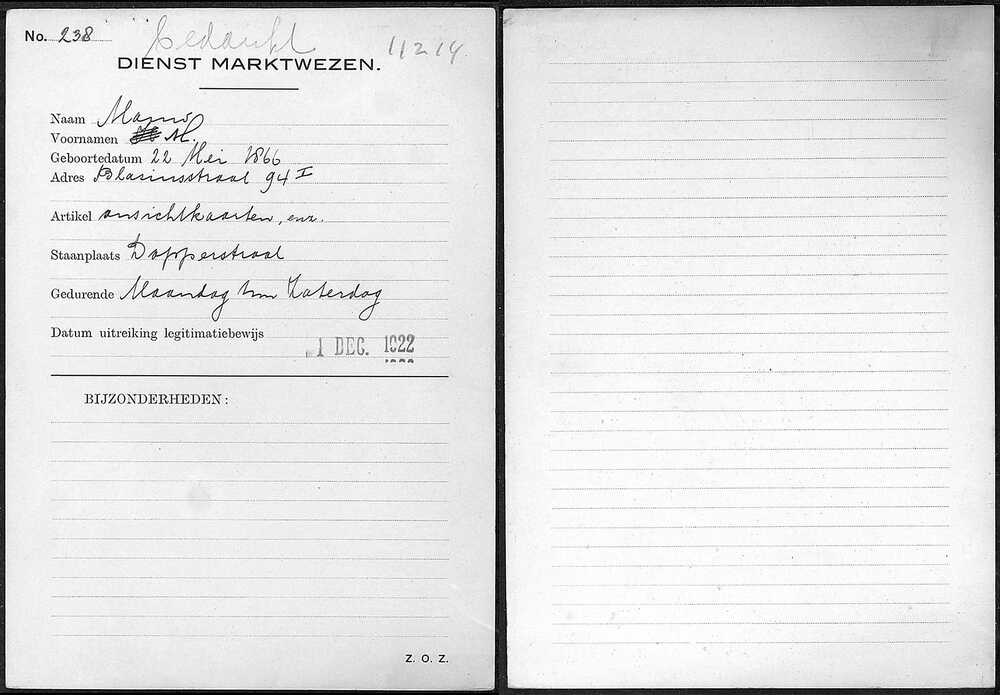 No. 238
bedankt
11214
DIENST MARKTWEZEN.
Naam
Voornamen M.
Geboortedatum 22 Mei 1866
Adres Blasiusstraat 94 I
Artikel ansichtkaarten, enz.
Staanplaats Dapperstraat
Gedurende Maandag t/m Zaterdag
Datum uitreiking legitimatiebewijs
1 DEC. 1922
BIJZONDERHEDEN:
Z. O. Z.